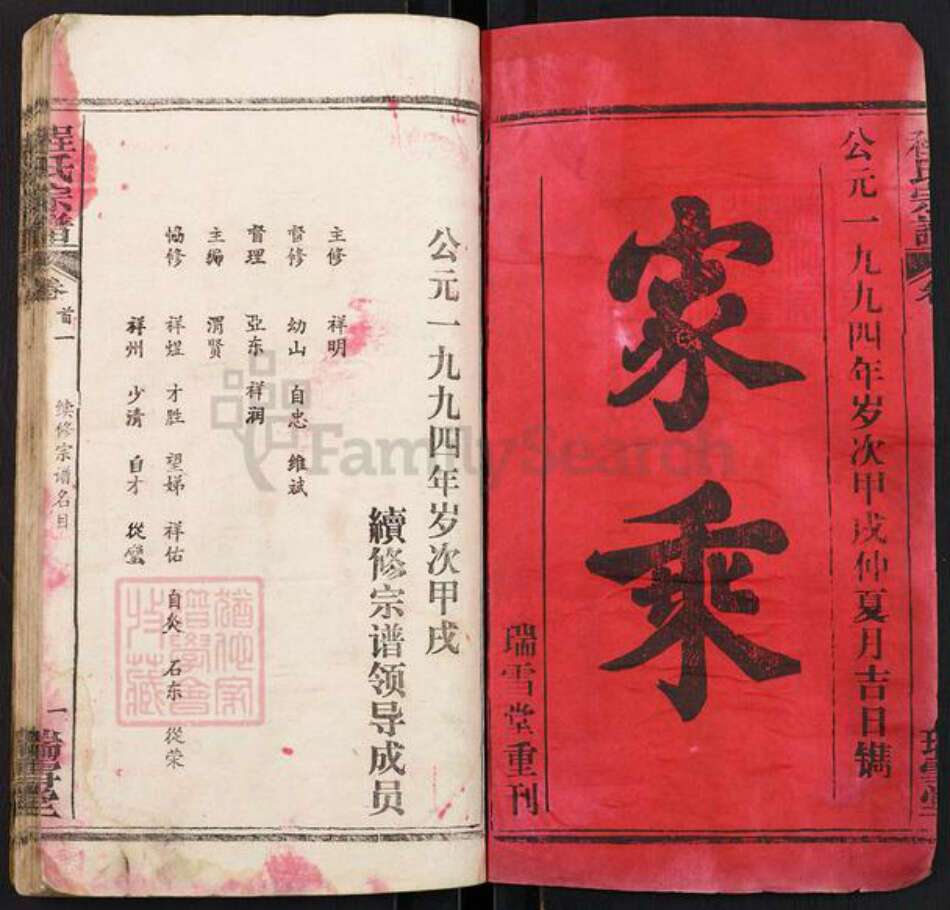 程氏宗譜
公元一九九四年岁次甲戌仲夏月吉日镌
家乘
瑞雪堂重刊
公元一九九四年岁次甲戌
續修宗谱领导成员
主修 祥明
督修 幼山 自忠 维斌
督理 亚东 祥润
主编 渭贤
协修 祥煜 才胜 望娣 祥佑 自炎 石东 從荣
祥州 少清 自才 從蛮
程氏宗譜
卷首一
续修宗谱名目
一
瑞雪堂
FamilySearch